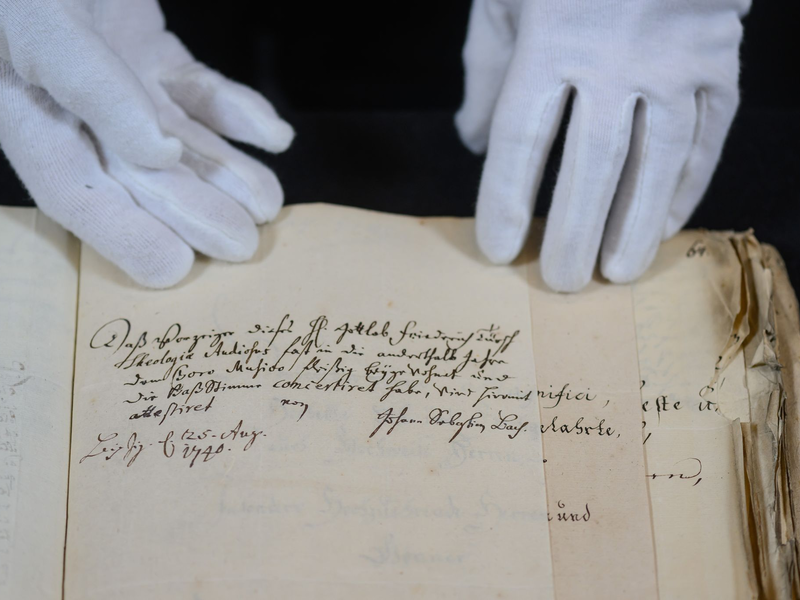 69.
Daß Vorzeiger dieses H. Gottlob Friedrich Türck
Theologiæ Studiosus fast in die anderthalb Jahre
dem Choro Musico fleißig beygewohnet und
die Baß Stimme concertiret habe, wird hiermit
attestiret von
Johann Sebastian Bach.
Leipzig. d. 25. Aug.
1740.
nifici,
und